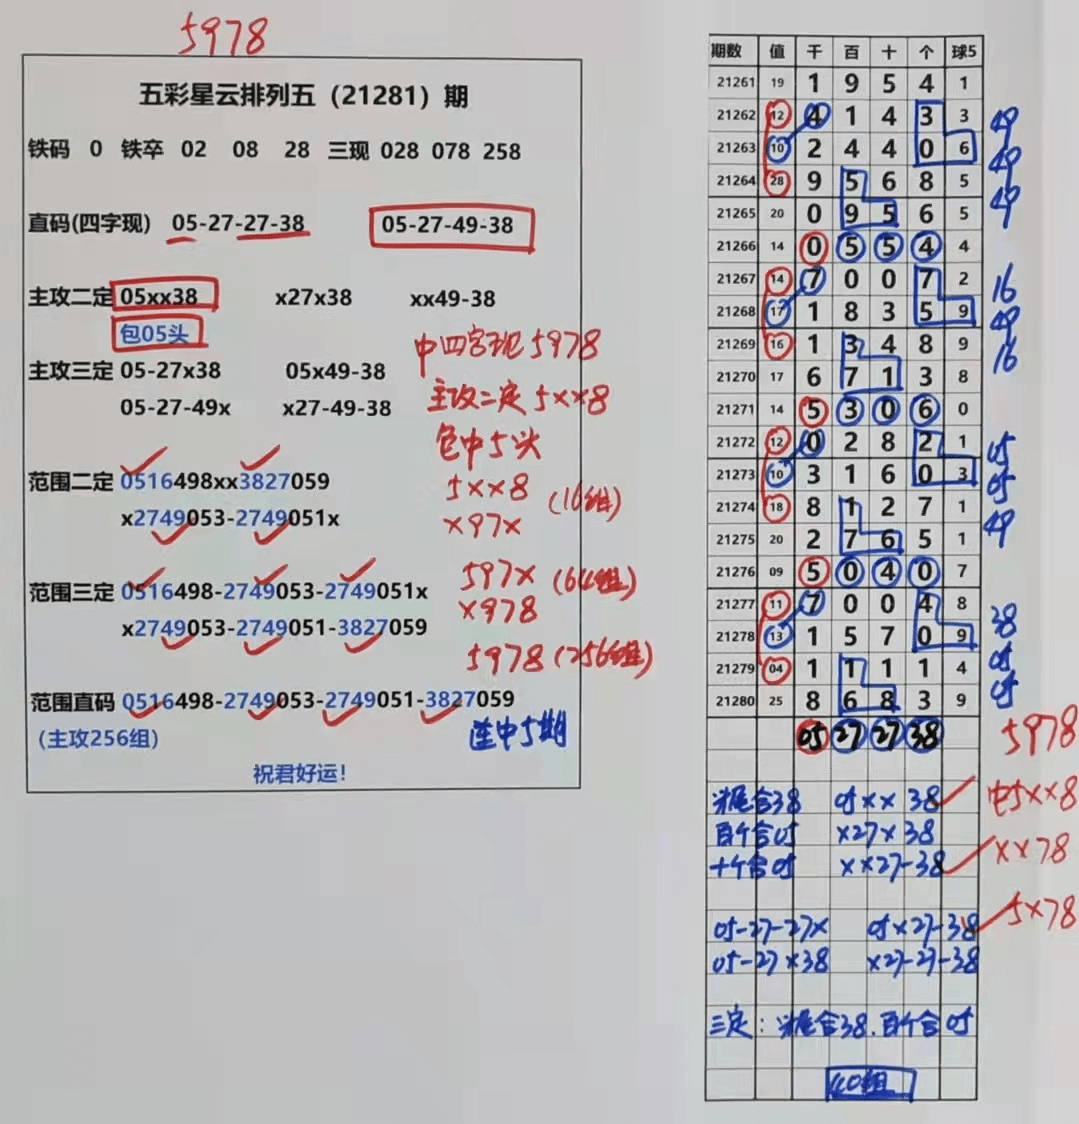 5978
五彩星云排列五（21281）期
铁码 0 铁卒 02 08 28 三现 028 078 258
直码(四字现) 05-27-27-38 05-27-49-38
主攻二定 05xx38 x27x38 xx49-38
包05头
主攻三定 05-27x38 05x49-38
05-27-49x x27-49-38
中四字现5978
主攻二定5××8
包中5头
范围二定 0516498xx3827059
x2749053-2749051x
5××8 (16组)
×97×
范围三定 0516498-2749053-2749051x
x2749053-2749051-3827059
597× (64组)
×978
5978 (256组)
范围直码 0516498-2749053-2749051-3827059
(主攻256组)
连中5期
祝君好运!
期数 值 千 百 十 个 球5
21261 19 1 9 5 4 1
21262 12 4 1 4 3 3 49
21263 10 2 4 4 0 6 49
21264 28 9 5 6 8 5 49
21265 20 0 9 5 6 5
21266 14 0 5 5 4 4
21267 14 7 0 0 7 2 16
21268 17 1 8 3 5 9 49
21269 16 1 3 4 8 9 16
21270 17 6 7 1 3 8
21271 14 5 3 0 6 0
21272 12 0 2 8 2 1 05
21273 10 3 1 6 0 3 05
21274 18 8 1 2 7 1 49
21275 20 2 7 6 5 1
21276 09 5 0 4 0 7
21277 11 7 0 0 4 8 38
21278 13 1 5 7 0 9 05
21279 04 1 1 1 1 4 05
21280 25 8 6 8 3 9
05 27 27 38 5978
尾合38 05×× 38 中5××8
百个合05 ×27×38
十个合05 ××27-38 ××78
05-27-27× 05×27-38 5×78
05-27×38 ×27-27-38
三定：尾合38.百个合05
40组